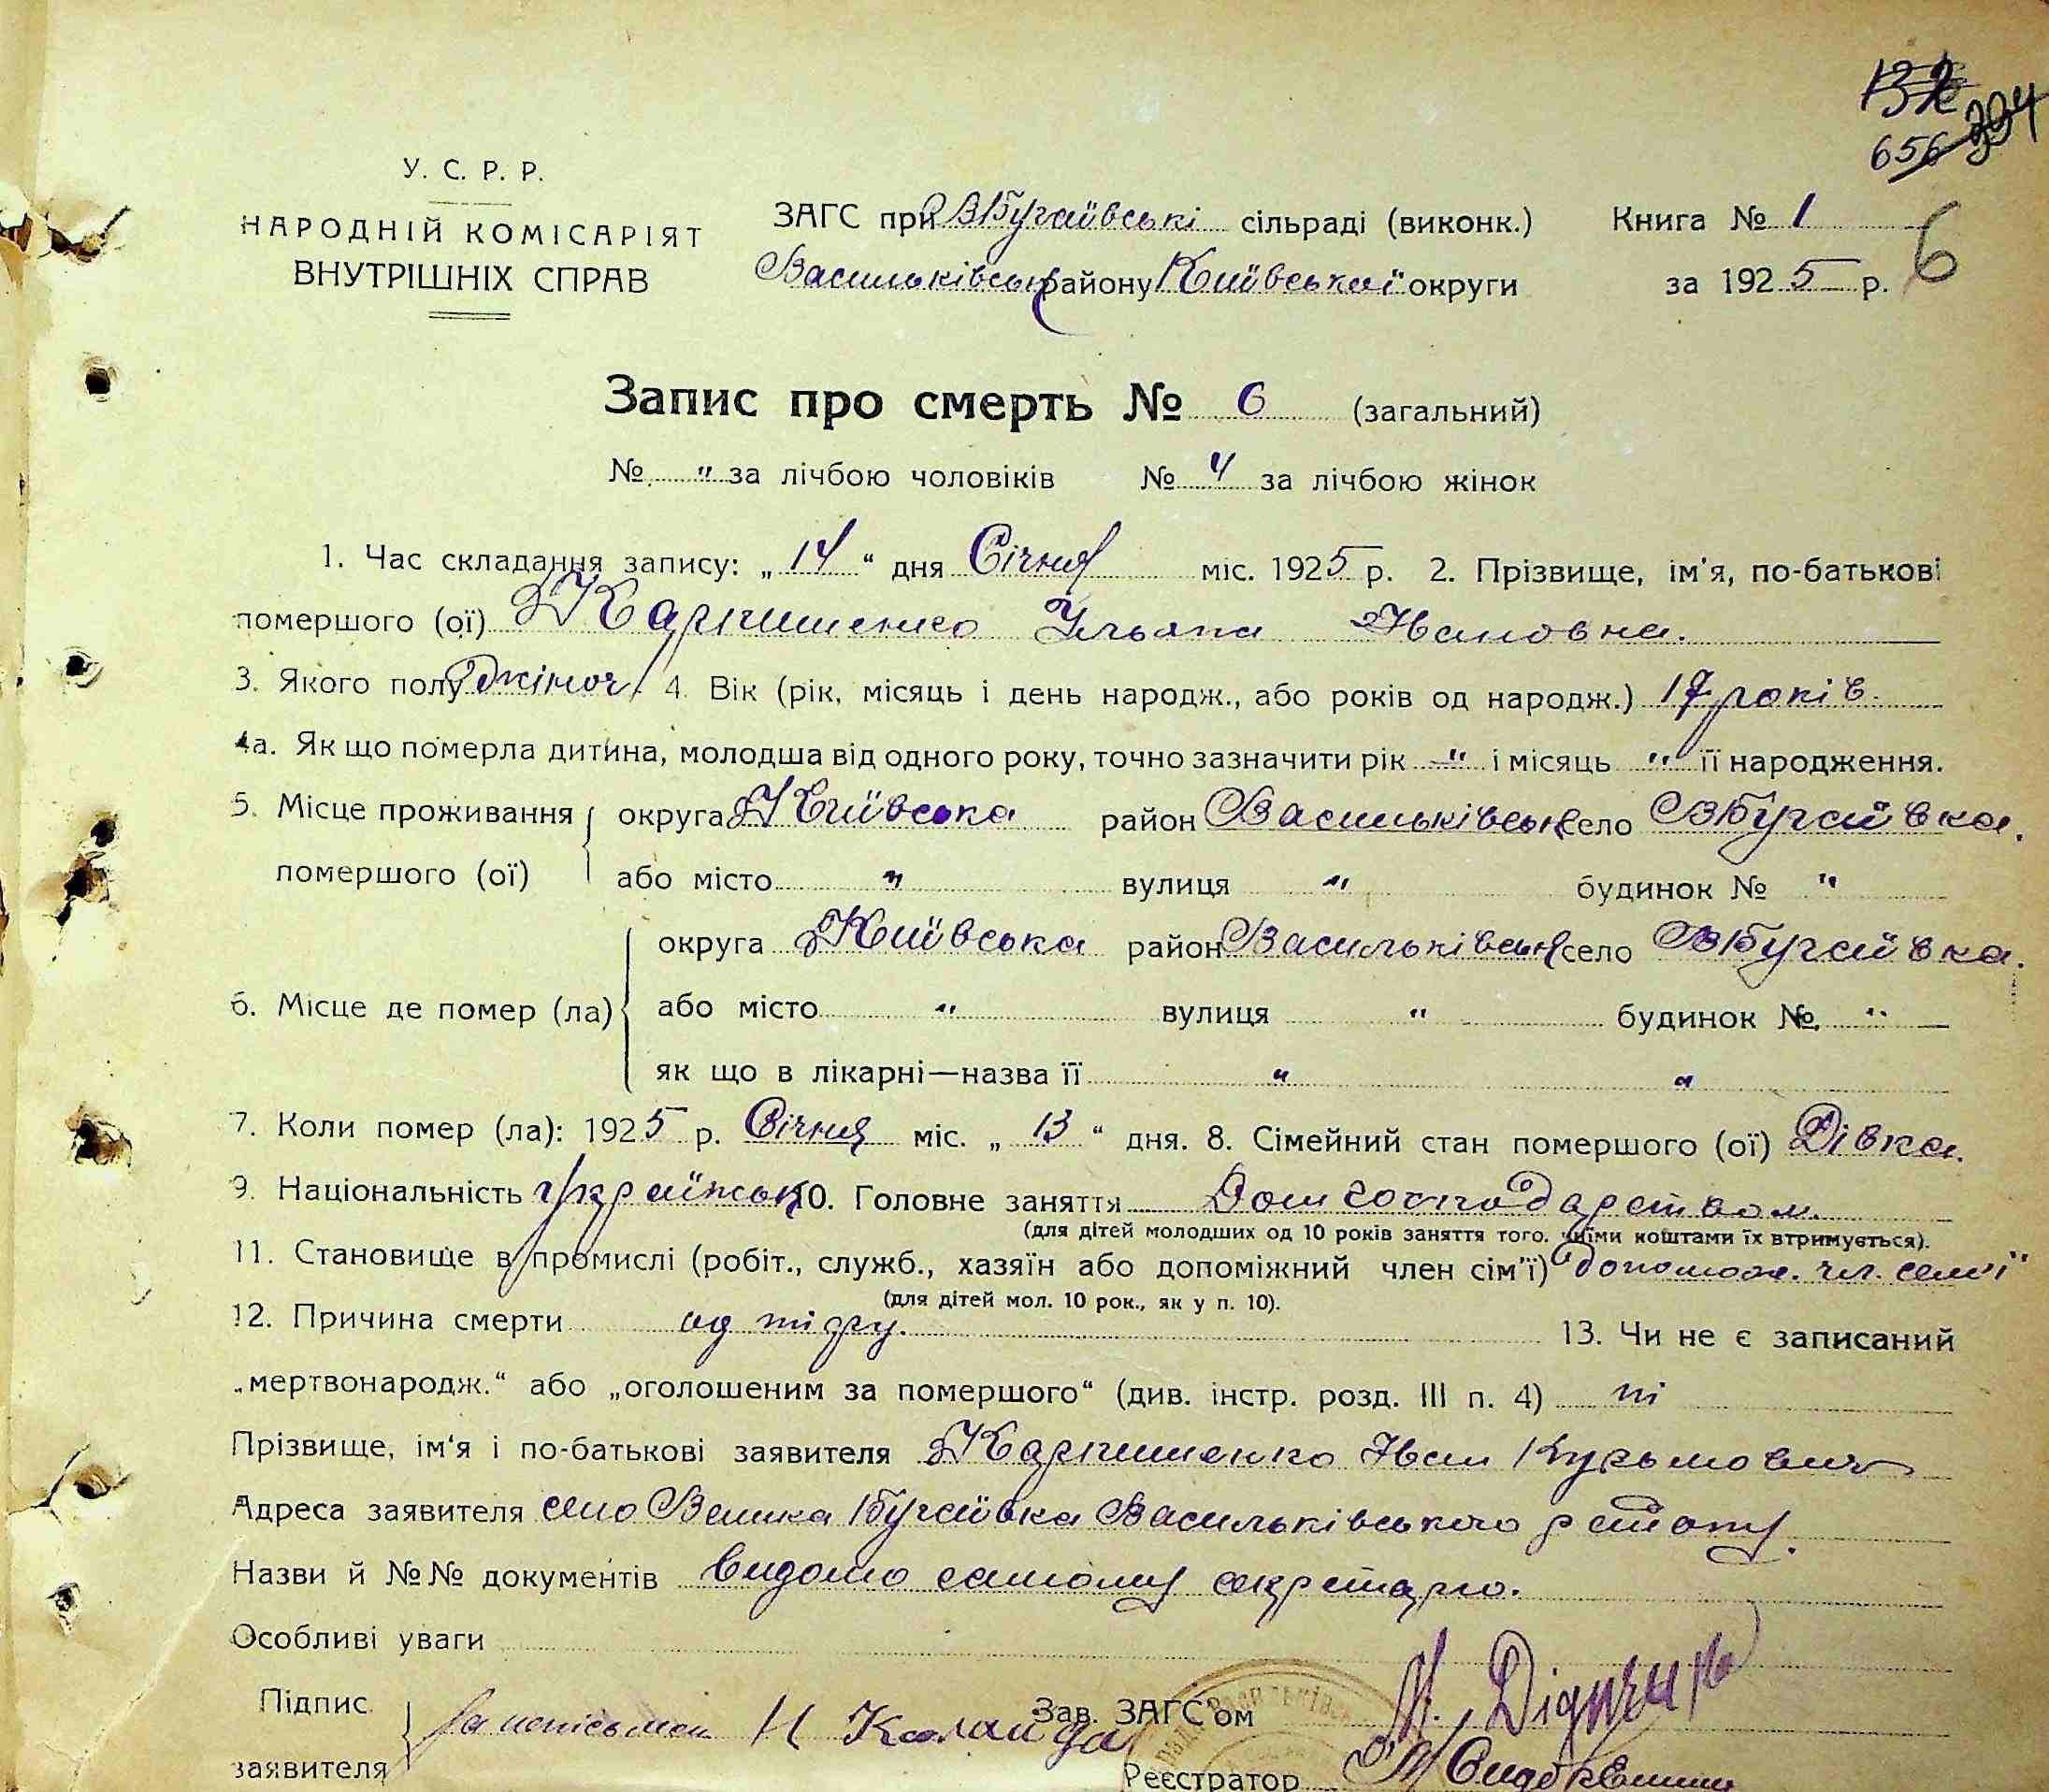 132
656 394
У. С. Р. Р.
НАРОДНІЙ КОМІСАРІЯТ
ВНУТРІШНІХ СПРАВ
ЗАГС при ВБугаївські сільраді (виконк.) Книга № 1
Васильківськ району Київської округи за 1925 р. 6
Запис про смерть № 6 (загальний)
№ " за лічбою чоловіків № 4 за лічбою жінок
1. Час складання запису: „14“ дня Січня міс. 1925 р. 2. Прізвище, ім'я, по-батькові
помершого (ої) Карпишенко Ульяна Ивановна.
3. Якого полу жіноч. 4. Вік (рік, місяць і день народж., або років од народж.) 17 років.
4а. Як що померла дитина, молодша від одного року, точно зазначити рік " і місяць " її народження.
5. Місце проживання помершого (ої) округа Київська район Васильківськ село ВБугаївка.
або місто " вулиця " будинок № "
6. Місце де помер (ла) округа Київська район Васильківськ село ВБугаївка.
або місто " вулиця " будинок № "
як що в лікарні—назва її " "
7. Коли помер (ла): 1925 р. Січня міс. „13“ дня. 8. Сімейний стан помершого (ої) Дівка.
9. Національність українськ 10. Головне заняття Дом господарством.
(для дітей молодших од 10 років заняття того. чиїми коштами їх втримується).
11. Становище в промислі (робіт., служб., хазяїн або допоміжний член сім'ї) допомож. чл. семьї
(для дітей мол. 10 рок., як у п. 10).
12. Причина смерти од тіфу. 13. Чи не є записаний
„мертвонародж.“ або „оголошеним за помершого“ (див. інстр. розд. III п. 4) ні
Прізвище, ім'я і по-батькові заявителя Карпишенко Иван Кузьмович
Адреса заявителя село Велика Бугаївка Васильківського району.
Назви й №№ документів видомо самому секретарю.
Особливі уваги
Підпис заявителя Н Каланда
Зав. ЗАГС'ом
Реєстратор